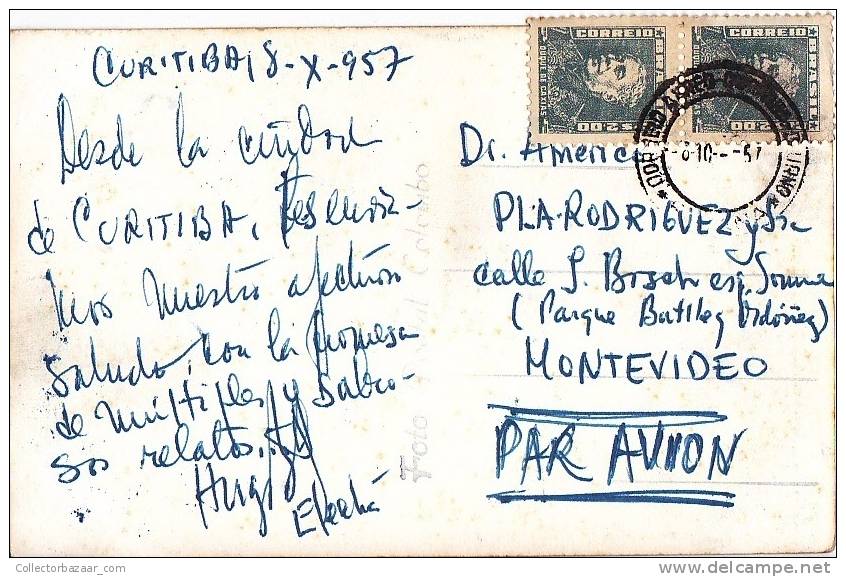 CURITIBA, 8-X-957
Desde la ciudad
de CURITIBA, les envia-
mos nuestro afectuoso
saludo, con la promesa
de múltiples y sabro-
sos relatos.
Hugo
CORREIO
BRASIL
DUQUE DE CAXIAS
2,00
CORREIO
BRASIL
DUQUE DE CAXIAS
2,00
CORREIO AEREO
8-10-57
Dr. Américo
PLA-RODRIGUEZ y Sra
calle J. Bosch esq.
(Parque Batlle y Ordóñez)
MONTEVIDEO
PAR AVION
Foto Colombo
CollectorBazaar_com
www.delcampe.net